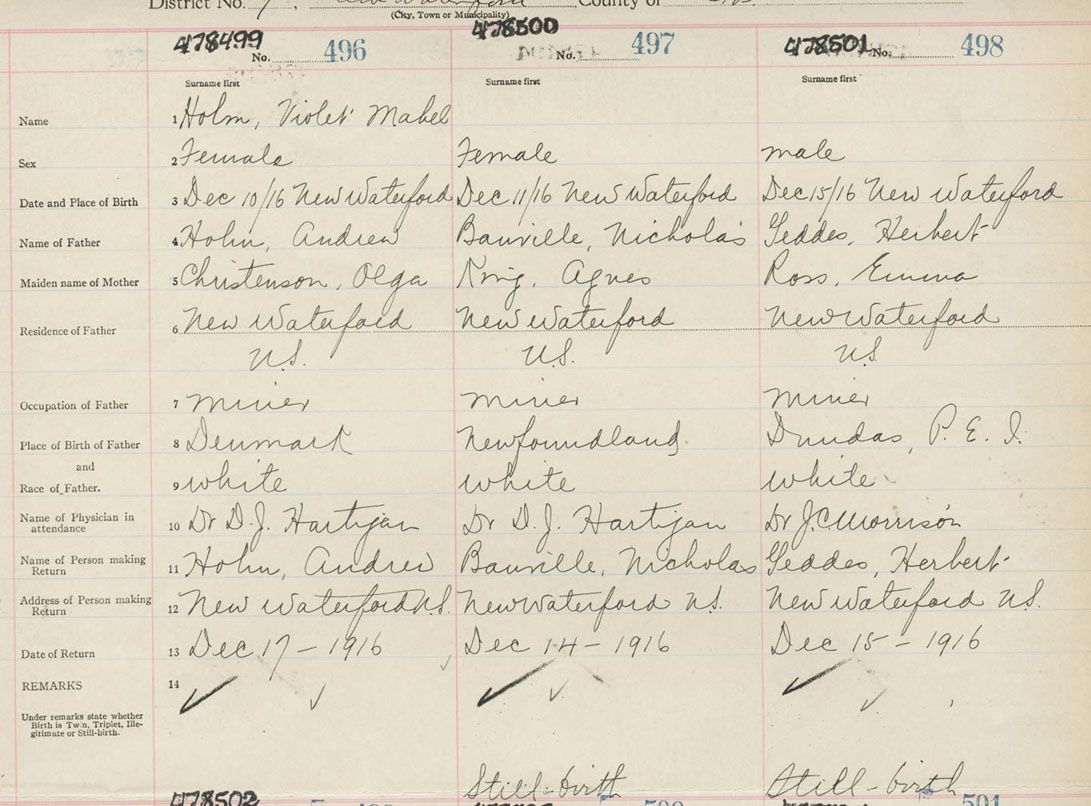 District No. 7, New Waterford County of
(City, Town or Municipality)
478499 No. 496 478500 No. 497 478501 No. 498
Surname first Surname first Surname first
Name 1 Holm, Violet Mabel
Sex 2 Female Female male
Date and Place of Birth 3 Dec 10/16 New Waterford Dec 11/16 New Waterford Dec 15/16 New Waterford
Name of Father 4 Holm, Andrew Bauville, Nicholas Geddes, Herbert
Maiden name of Mother 5 Christenson, Olga King, Agnes Ross, Emma
Residence of Father 6 New Waterford New Waterford New Waterford
N.S. N.S. N.S.
Occupation of Father 7 miner miner miner
Place of Birth of Father 8 Denmark Newfoundland Dundas, P. E. I.
and
Race of Father. 9 white white white
Name of Physician in attendance 10 Dr D. J. Hartigan Dr D. J. Hartigan Dr J. C Morrison
Name of Person making Return 11 Holm, Andrew Bauville, Nicholas Geddes, Herbert
Address of Person making Return 12 New Waterford N.S. New Waterford N.S. New Waterford N.S.
Date of Return 13 Dec 17 - 1916 Dec 14 - 1916 Dec 15 - 1916
REMARKS 14
Under remarks state whether
Birth is Twin, Triplet, Ille-
gitimate or Still-birth.
Still-birth Still-birth
478502 501